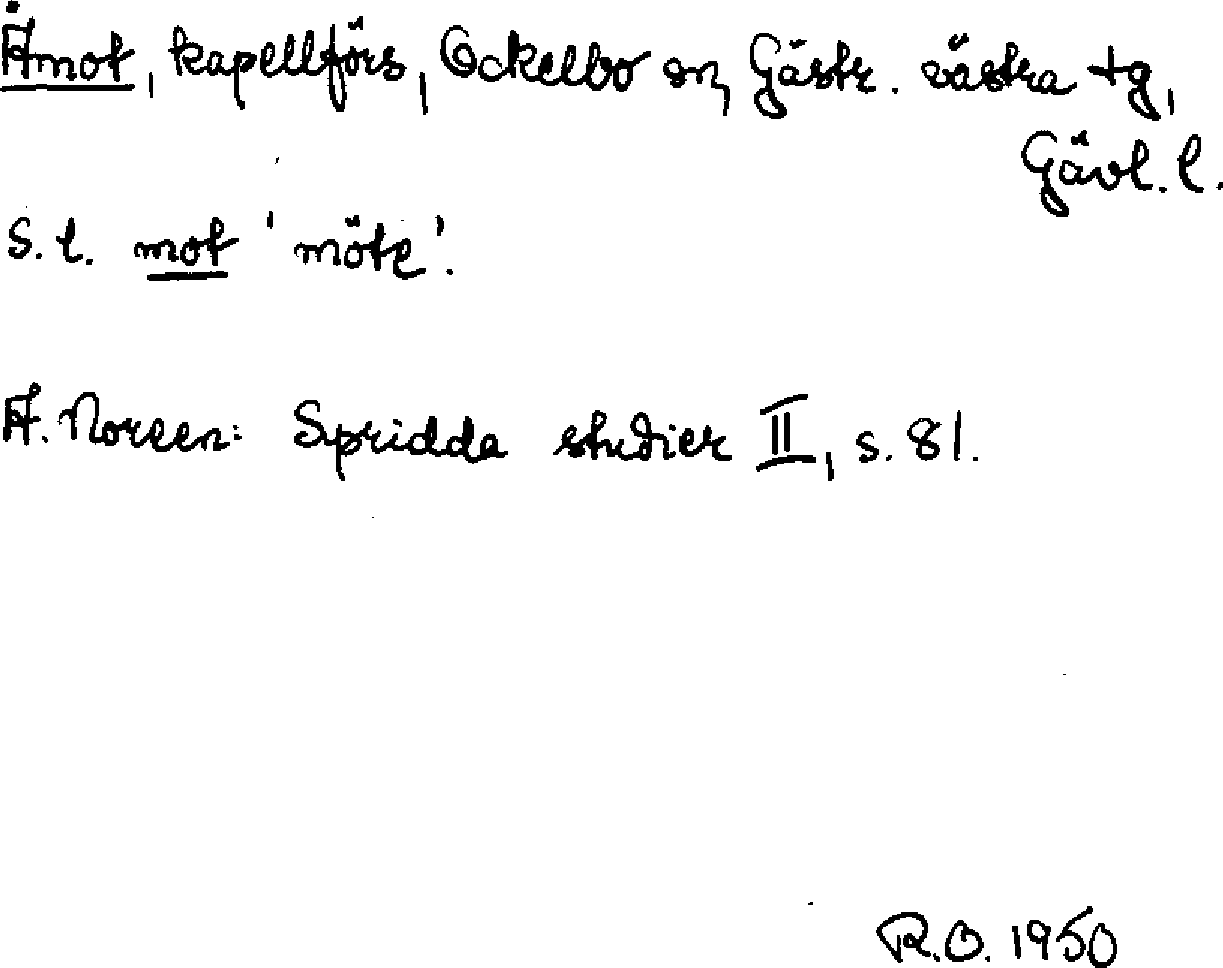 Åmot, kapellförs, Ockelbo sn, Gästr. västra tg,
Gävl. l.
S. l. mot 'möte'.
A. Noreen: Spridda studier II, s. 81.
R.O. 1950